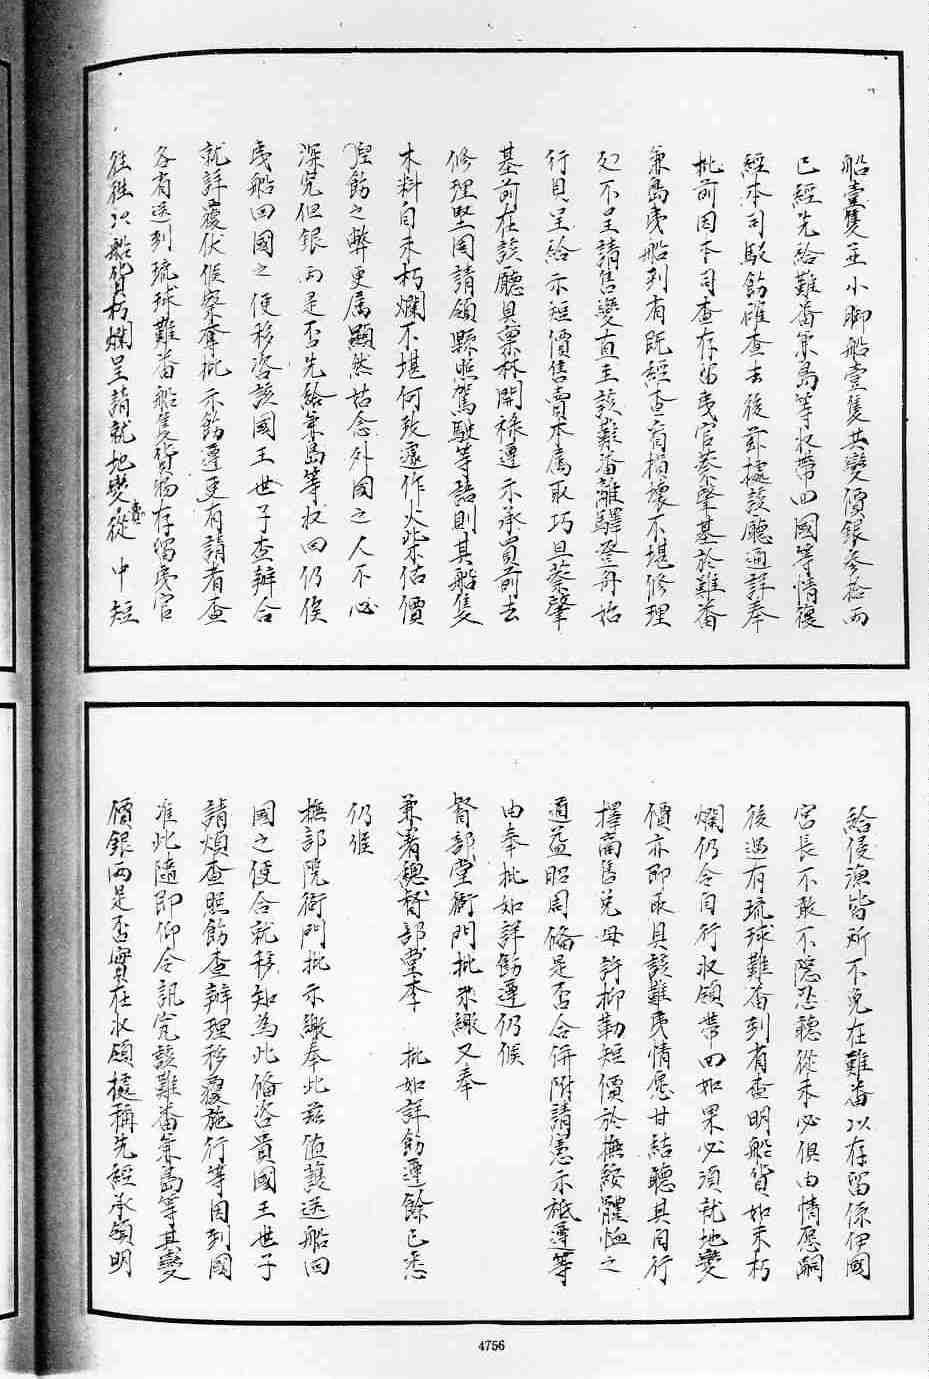 船壹隻並小脚船壹隻共變價銀叁拾両
已經先給難番兼島等收帶回國等情復
經本司駁飭確查去後茲據該廳通詳奉
批前因本司查存留夷官蔡肇基於難番
兼島夷船到有既經查有損壞不堪修理
処不呈請售變直至該難番離驛登舟始
行具呈給示短價售賣本屬取巧且蔡肇
基前在該廳具稟林開祿遵示承買前去
修理堅固請領縣照駕駛等語則其船隻
木料自未朽爛不堪何致遽作火柴估價
捏飭之弊更属顯然姑念外國之人不必
深究但銀両是否先給兼島等收回仍俟
夷船回國之便移咨該國王世子查辦合
就詳覆伏候察奪批示飭遵更有請者查
各有送到琉球難番船隻貨物存留夷官
往往以船貨朽爛呈請就地變賣從中短
給侵漁皆所不免在難番以存留係伊國
官長不敢不隐忍聽從未必俱由情愿嗣
後遇有琉球難番到有查明船貨如未朽
爛仍令自行收領帶回如果必須就地變
價亦即取具該難夷情愿甘結聽其自行
擇商售兌毋許抑勒短價於撫綏體恤之
道益昭周偹是否合併附請憲示祗遵等
由奉批如詳飭遵仍候
督部堂衙門批示繳又奉
兼署總督部堂李　批如詳飭遵餘已悉
仍候
撫部院衙門批示繳奉此茲值護送船回
國之便合就移知為此偹咨貴國王世子
請煩查照飭查辦理移覆施行等因到國
准此隨即仰令訊究該難番兼島等其變
價銀両是否實在收領據稱先經承領明
4756